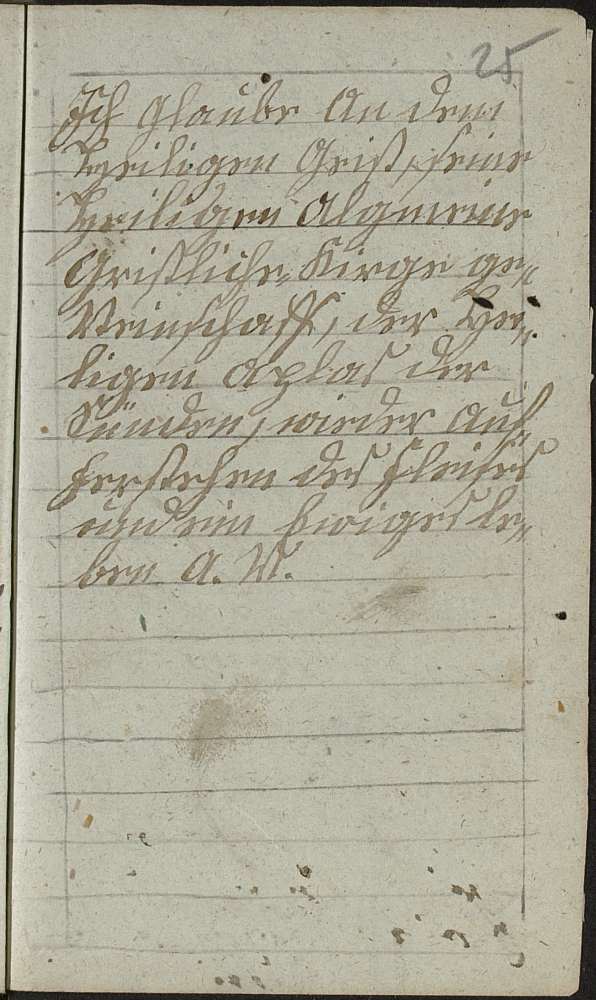 25
Ich glaube An dem
Heiligen Geist, seine
Heiligen Algmeine
Gristliche, Kirge ge„
Meinschaft, der Hei„
ligen aplas der
Sünden, wieder Auf„
ferstehen des Fleises
und ein Ewiges le„
ben A. M.